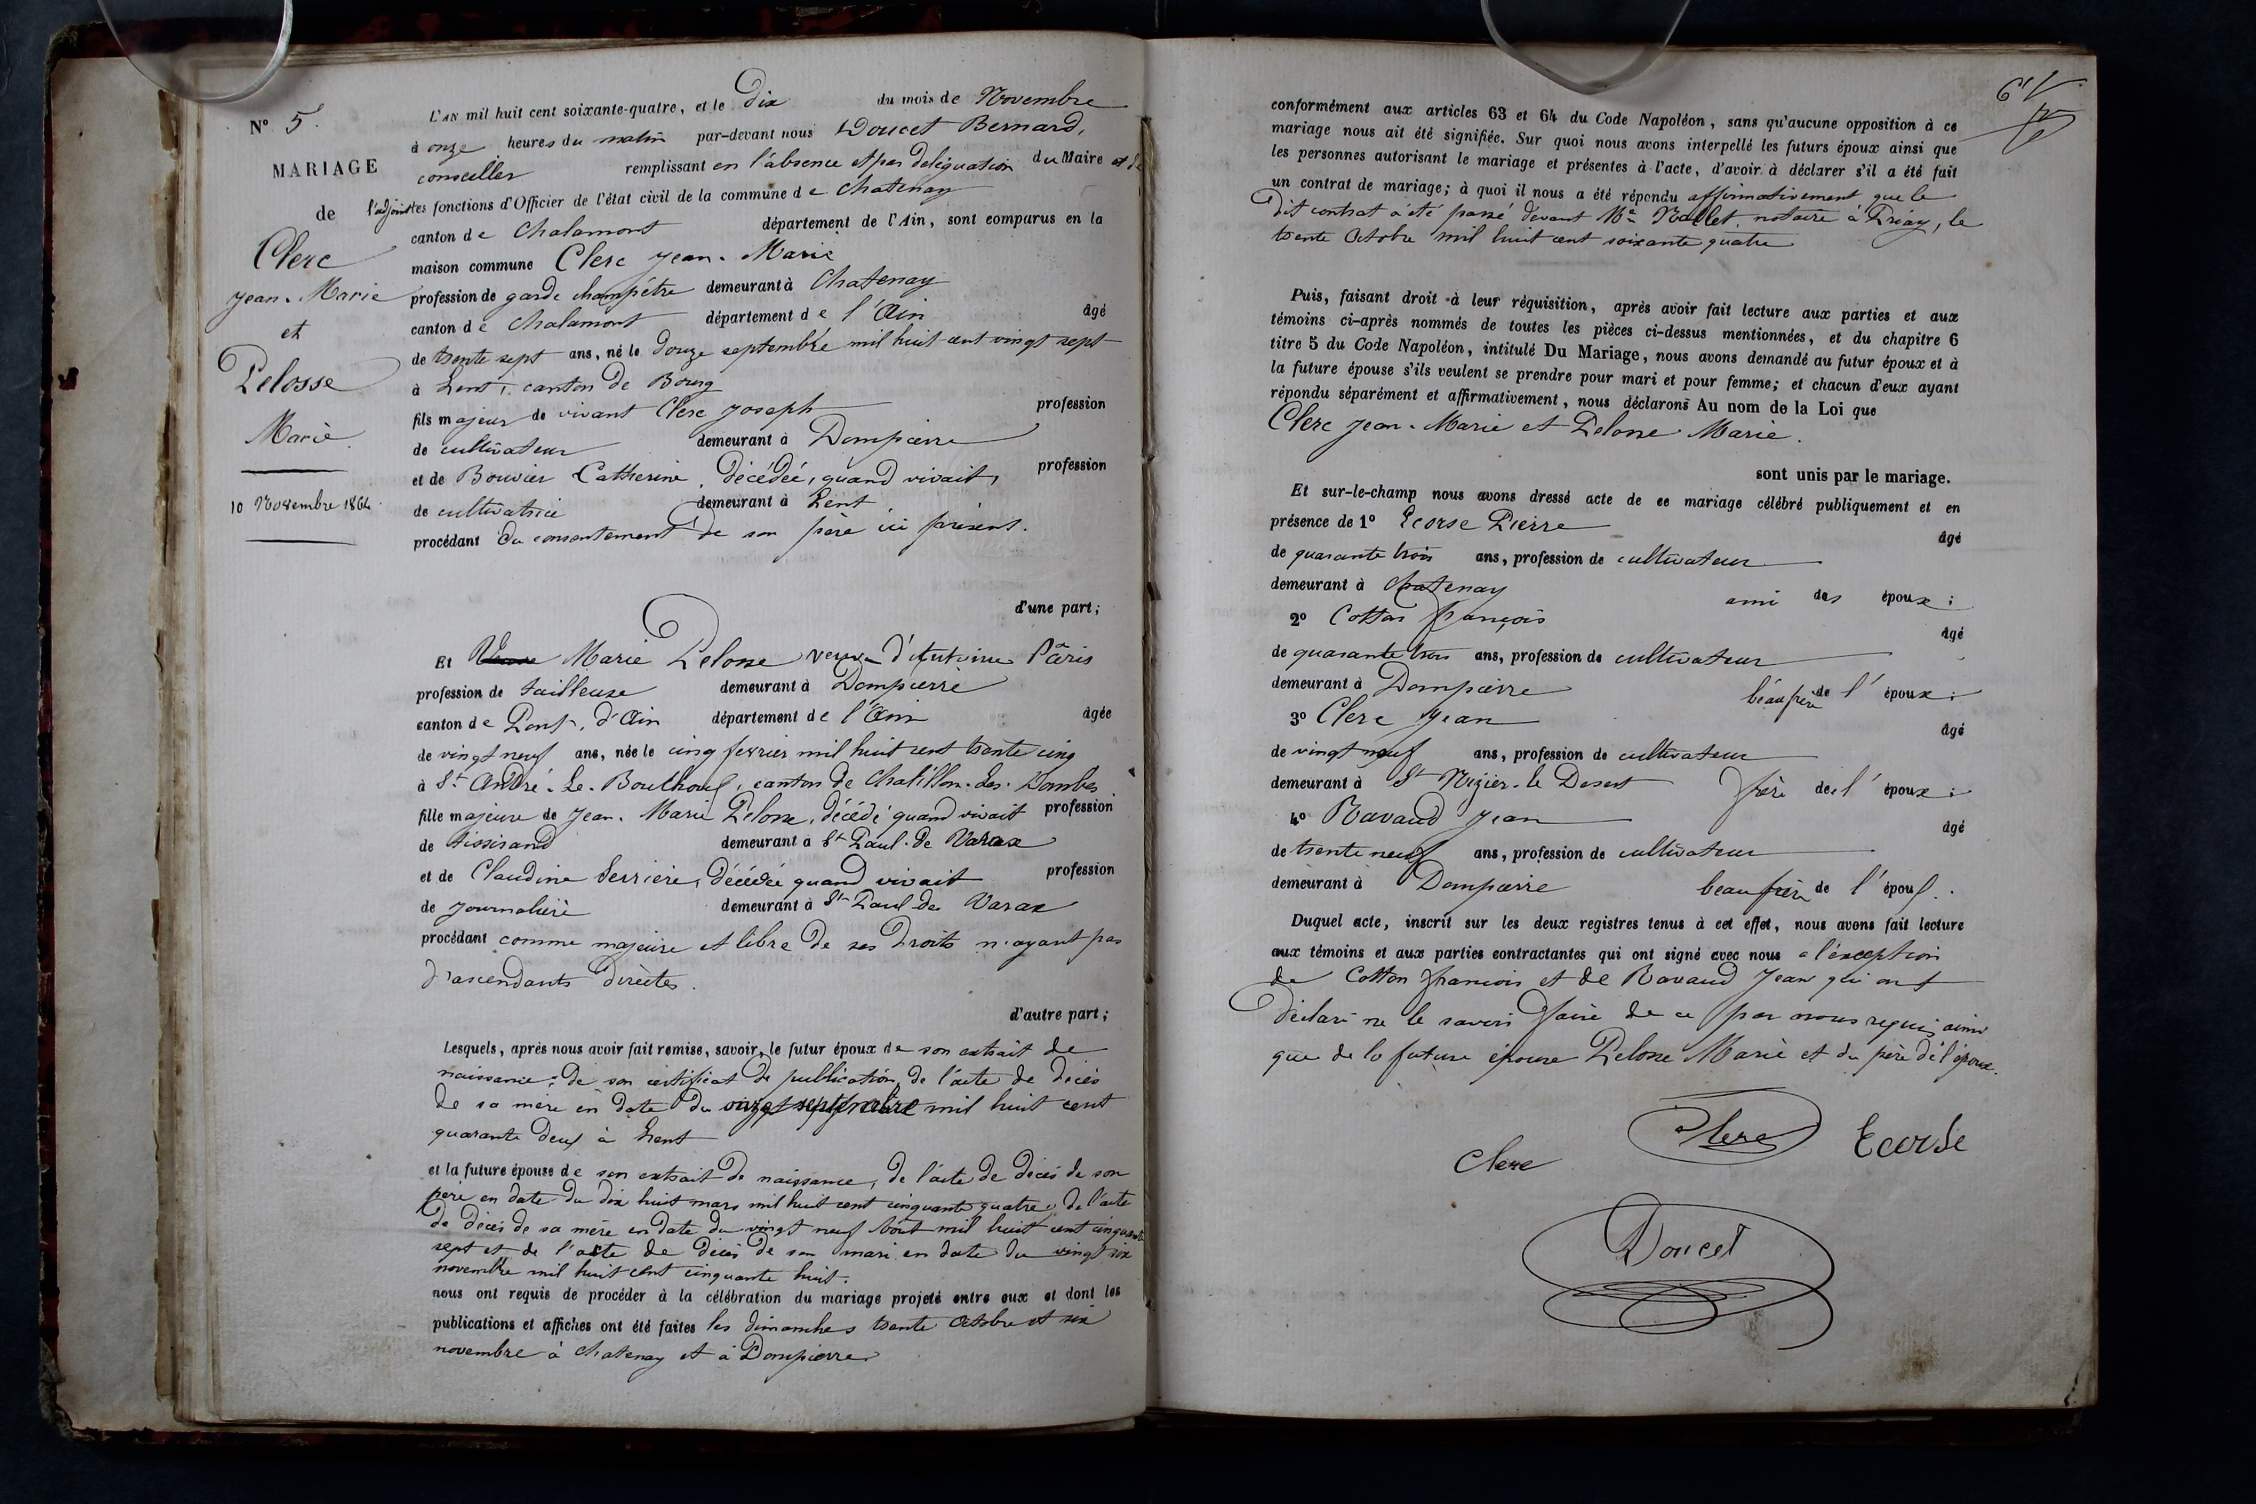 N° 5.
MARIAGE
de
Clerc
Jean-Marie
et
Pelosse
Marie
10 Novembre 1864
L'AN mil huit cent soixante-quatre, et le Dix du mois de Novembre
à onze heures du matin par-devant nous Doucet Bernard,
conseiller remplissant en l'absence et par deléguation du Maire et de
l'adjoint les fonctions d'Officier de l'état civil de la commune de Chatenay
canton de Chalamont département de l'Ain, sont comparus en la
maison commune Clerc Jean-Marie
profession de garde champêtre demeurant à Chatenay
canton de Chalamont département de l'Ain âgé
de trente sept ans, né le douze septembre mil huit cent vingt sept
à Lent, canton de Bourg
fils majeur de vivant Clerc Joseph profession
de cultivateur demeurant à Dompierre
et de Bouvier Catherine, décédée, quand vivait, profession
de cultivatrice demeurant à Lent
procédant du consentement de son père ici présent.
d'une part;
Et Marie Pelosse veuve d'Antoine Pâris
profession de tailleuse demeurant à Dompierre
canton de Pont-d'Ain département de l'Ain âgée
de vingt neuf ans, née le cinq fevrier mil huit cent trente cinq
à St André-Le-Bouchoux, canton de Chatillon-les-Dombes
fille majeure de Jean-Marie Pelosse, décédé quand vivait profession
de tisserand demeurant à St Paul-de Varax
et de Claudine Serriere, décédée quand vivait profession
de Journalière demeurant à St Paul de Varax
procédant comme majeure et libre de ses droits n'ayant pas
d'ascendants directes.
d'autre part;
Lesquels, après nous avoir fait remise, savoir, le futur époux de son extrait de
naissance, de son certificat de publication, de l'acte de décès
de sa mère en date du onze septembre mil huit cent
quarante deux à Lent
et la future épouse de son extrait de naissance, de l'acte de décès de son
père en date du dix huit mars mil huit cent cinquante quatre, de l'acte
de décès de sa mère en date du vingt neuf août mil huit cent cinquante
sept et de l'acte de décès de son mari en date du vingt six
novembre mil huit cent cinquante huit.
nous ont requis de procéder à la célébration du mariage projeté entre eux et dont les
publications et affiches ont été faites les dimanches trente Octobre et six
novembre à Chatenay et à Dompierre
conformément aux articles 63 et 64 du Code Napoléon, sans qu'aucune opposition à ce
mariage nous ait été signifiée. Sur quoi nous avons interpellé les futurs époux ainsi que
les personnes autorisant le mariage et présentes à l'acte, d'avoir à déclarer s'il a été fait
un contrat de mariage; à quoi il nous a été répondu affirmativement que le
dit contrat a été passé devant Me notaire à Priay, le
trente Octobre mil huit cent soixante quatre
Puis, faisant droit à leur réquisition, après avoir fait lecture aux parties et aux
témoins ci-après nommés de toutes les pièces ci-dessus mentionnées, et du chapitre 6
titre 5 du Code Napoléon, intitulé Du Mariage, nous avons demandé au futur époux et à
la future épouse s'ils veulent se prendre pour mari et pour femme; et chacun d'eux ayant
répondu séparément et affirmativement, nous déclarons Au nom de la Loi que
Clerc Jean-Marie et Pelosse Marie.
sont unis par le mariage.
Et sur-le-champ nous avons dressé acte de ce mariage célébré publiquement et en
présence de 1° Ecorse Pierre âgé
de quarante trois ans, profession de cultivateur
demeurant à Chatenay ami des époux;
2° Cotton françois âgé
de quarante trois ans, profession de cultivateur
demeurant à Dompierre béaufrère de l'époux;
3° Clerc Jean âgé
de vingt neuf ans, profession de cultivateur
demeurant à St Nizier-le Desert frère de l'époux;
4° Ravaud Jean âgé
de trente neuf ans, profession de cultivateur
demeurant à Dompierre beaufrère de l'époux.
Duquel acte, inscrit sur les deux registres tenus à cet effet, nous avons fait lecture
aux témoins et aux parties contractantes qui ont signé avec nous a l'exception
de Cotton francois et de Ravaud Jean qui ont
déclaré ne le savoir faire de ce par nous requis, ainsi
que de la future épouse Pelosse Marie et du père de l'époux.
Clerc
Clerc
Ecorse
Doucet